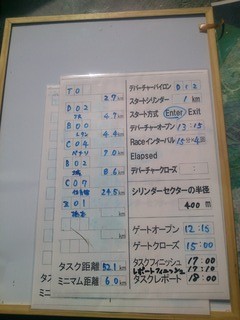 TO
2.7 km
D02
4.9 km
B00
4.4 km
C04
7.0 km
B02
8.6 km
C07
24.5 km
Z01
km
km
タスク距離 52.1 km
ミニマム距離 6.0 km
デパーチャーパイロン D02
スタートシリンダー 1 km
スタート方式 Enter Exit
デパーチャーオープン 13:15
Raceインターバル 15分×4回
Elapsed
デパーチャークローズ :
シリンダーセクターの半径
400 m
ゲートオープン 12:15
ゲートクローズ 15:00
タスクフィニッシュ 17:00
レポートフィニッシュ 17:10
タスクレポート 18:00